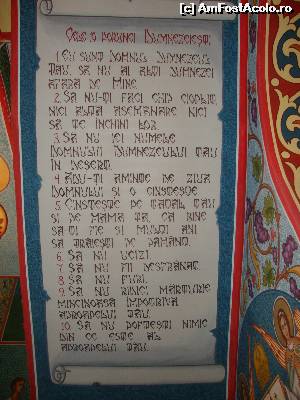 (C) AmFostAcolo.ro
Cele 10 porunci Dumnezeiesti.
1. Eu sunt Domnul Dumnezeul
Tau, sa nu ai alti dumnezei
afara de Mine.
2. Sa nu-ti faci chip cioplit,
nici alta asemanare nici
sa te inchini lor.
3. Sa nu iei numele
Domnului Dumnezeului tau
in desert.
4. Adu-ti aminte de ziua
Domnului si o cinsteste
5. Cinsteste pe tatal tau
si pe mama ta, ca bine
sa-ti fie si multi ani
sa traiesti pe pamant.
6. Sa nu ucizi.
7. Sa nu fii desfranat.
8. Sa nu furi.
9. Sa nu ridici marturie
mincinoasa impotriva
aproapelui tau.
10. Sa nu poftesti nimic
din ce este al
aproapelui tau.